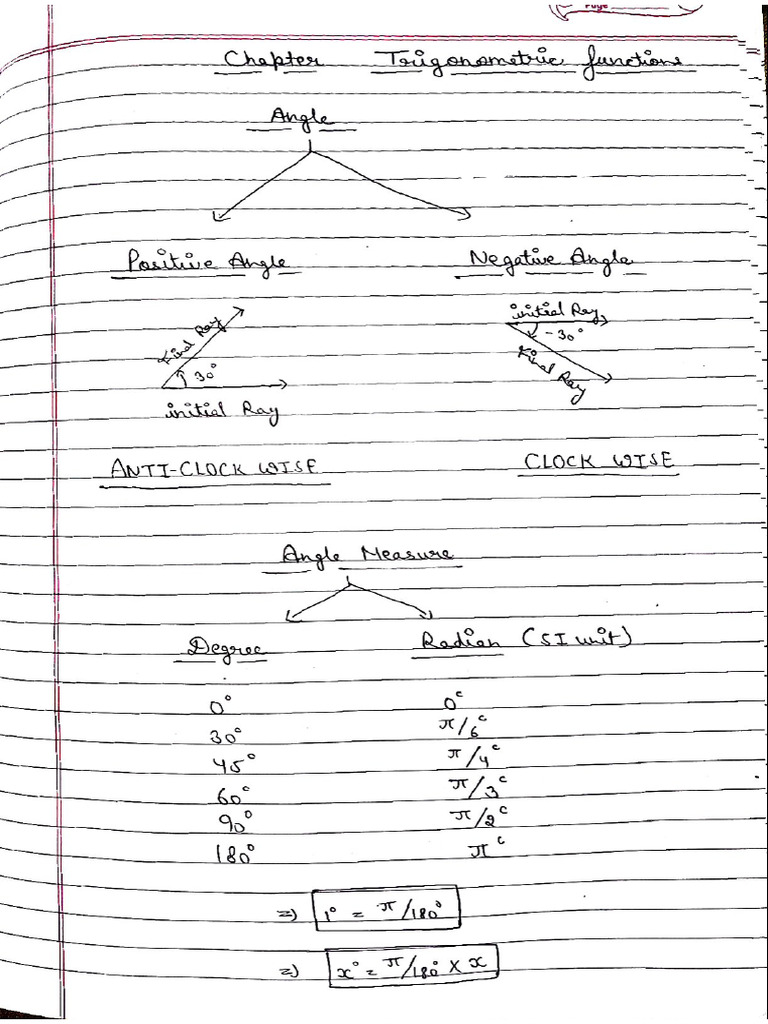 Page
Chapter Trigonometric functions
Angle
Positive Angle Negative Angle
Final Ray
30°
initial Ray
initial Ray
-30°
Final Ray
ANTI-CLOCK WISE CLOCK WISE
Angle Measure
Degree Radian (SI unit)
0° 0ᶜ
30° π/6ᶜ
45° π/4ᶜ
60° π/3ᶜ
90° π/2ᶜ
180° πᶜ
=) 1° = π/180°
=) x° = π/180° × x